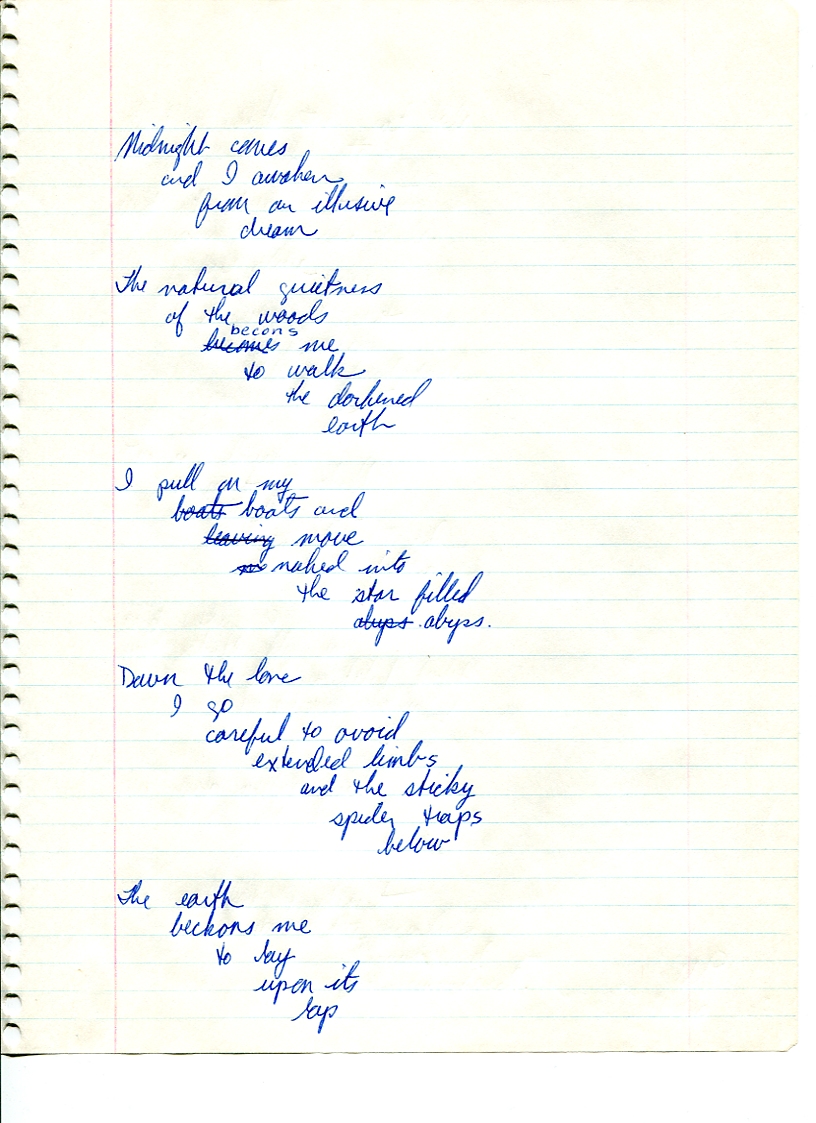 Midnight comes
and I awaken
from an illusive
dream
The natural quietness
of the woods
becons
becomes me
to walk
the darkened
earth
I pull on my
boats boots and
leaving move
naked into
the star filled
abyss abyss.
Down the lane
I go
careful to avoid
extended limbs
and the sticky
spider traps
below
The earth
beckons me
to lay
upon its
lap